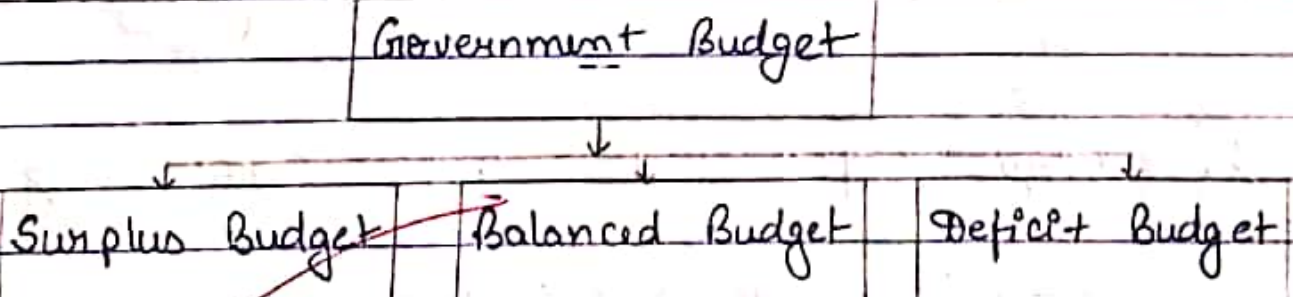 Government Budget
Surplus Budget Balanced Budget Deficit Budget